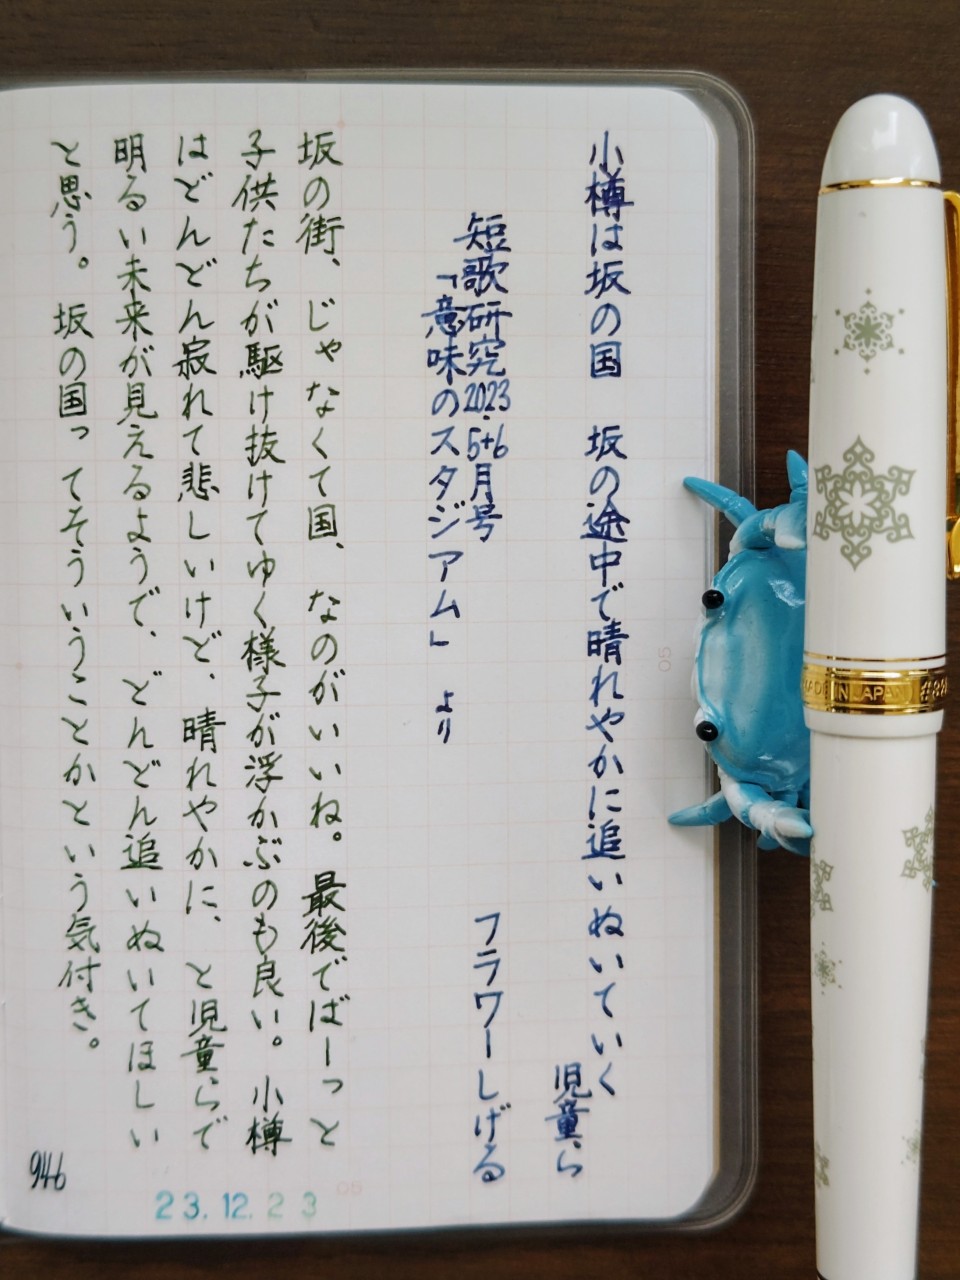 小樽は坂の国　坂の途中で晴れやかに追いぬいていく
児童ら
短歌研究2023.5+6月号
「意味のスタジアム」より
フラワーしげる
坂の街、じゃなくて国、なのがいいね。最後でばーっと
子供たちが駆け抜けてゆく様子が浮かぶのも良い。小樽
はどんどん寂れて悲しいけど、晴れやかに、と児童らで
明るい未来が見えるようで、どんどん追いぬいてほしい
と思う。坂の国ってそういうことかという気付き。
946
23.12.23
05
05
MADE IN JAPAN